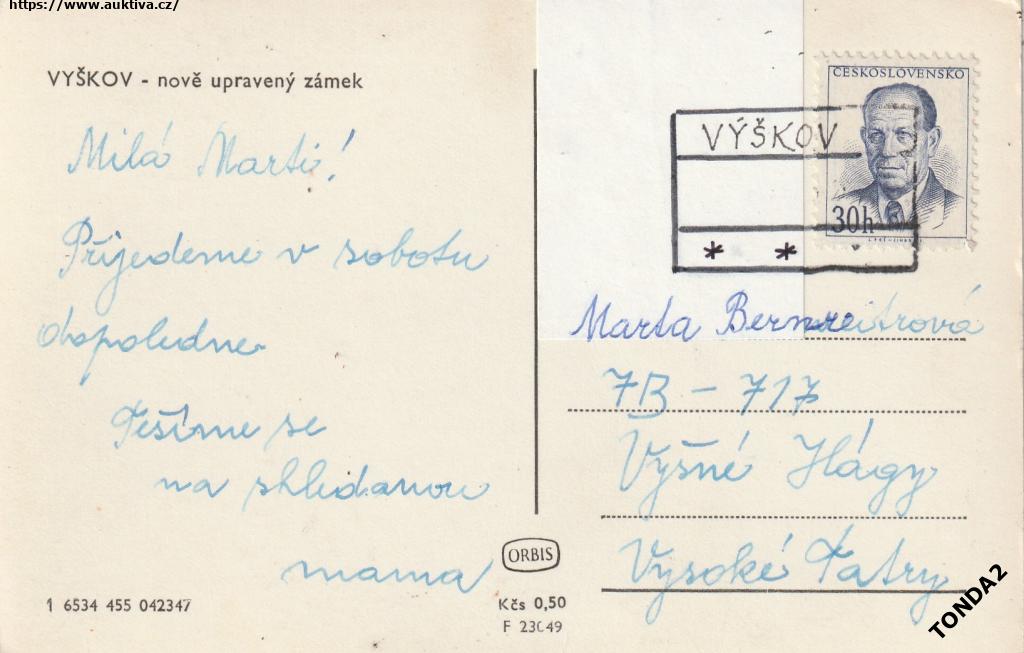 https://www.auktiva.cz/
VYŠKOV - nově upravený zámek
Milá Marti!
Přijedeme v sobotu
dopoledne
Těšíme se
na shledanou
mama
1 6534 455 042347
ORBIS
Kčs 0,50
F 23049
ČESKOSLOVENSKO
30h
VÝŠKOV
* *
Marta Bernreitrová
7B - 717
Vyšné Hágy
Vysoké Tatry
TONDA2